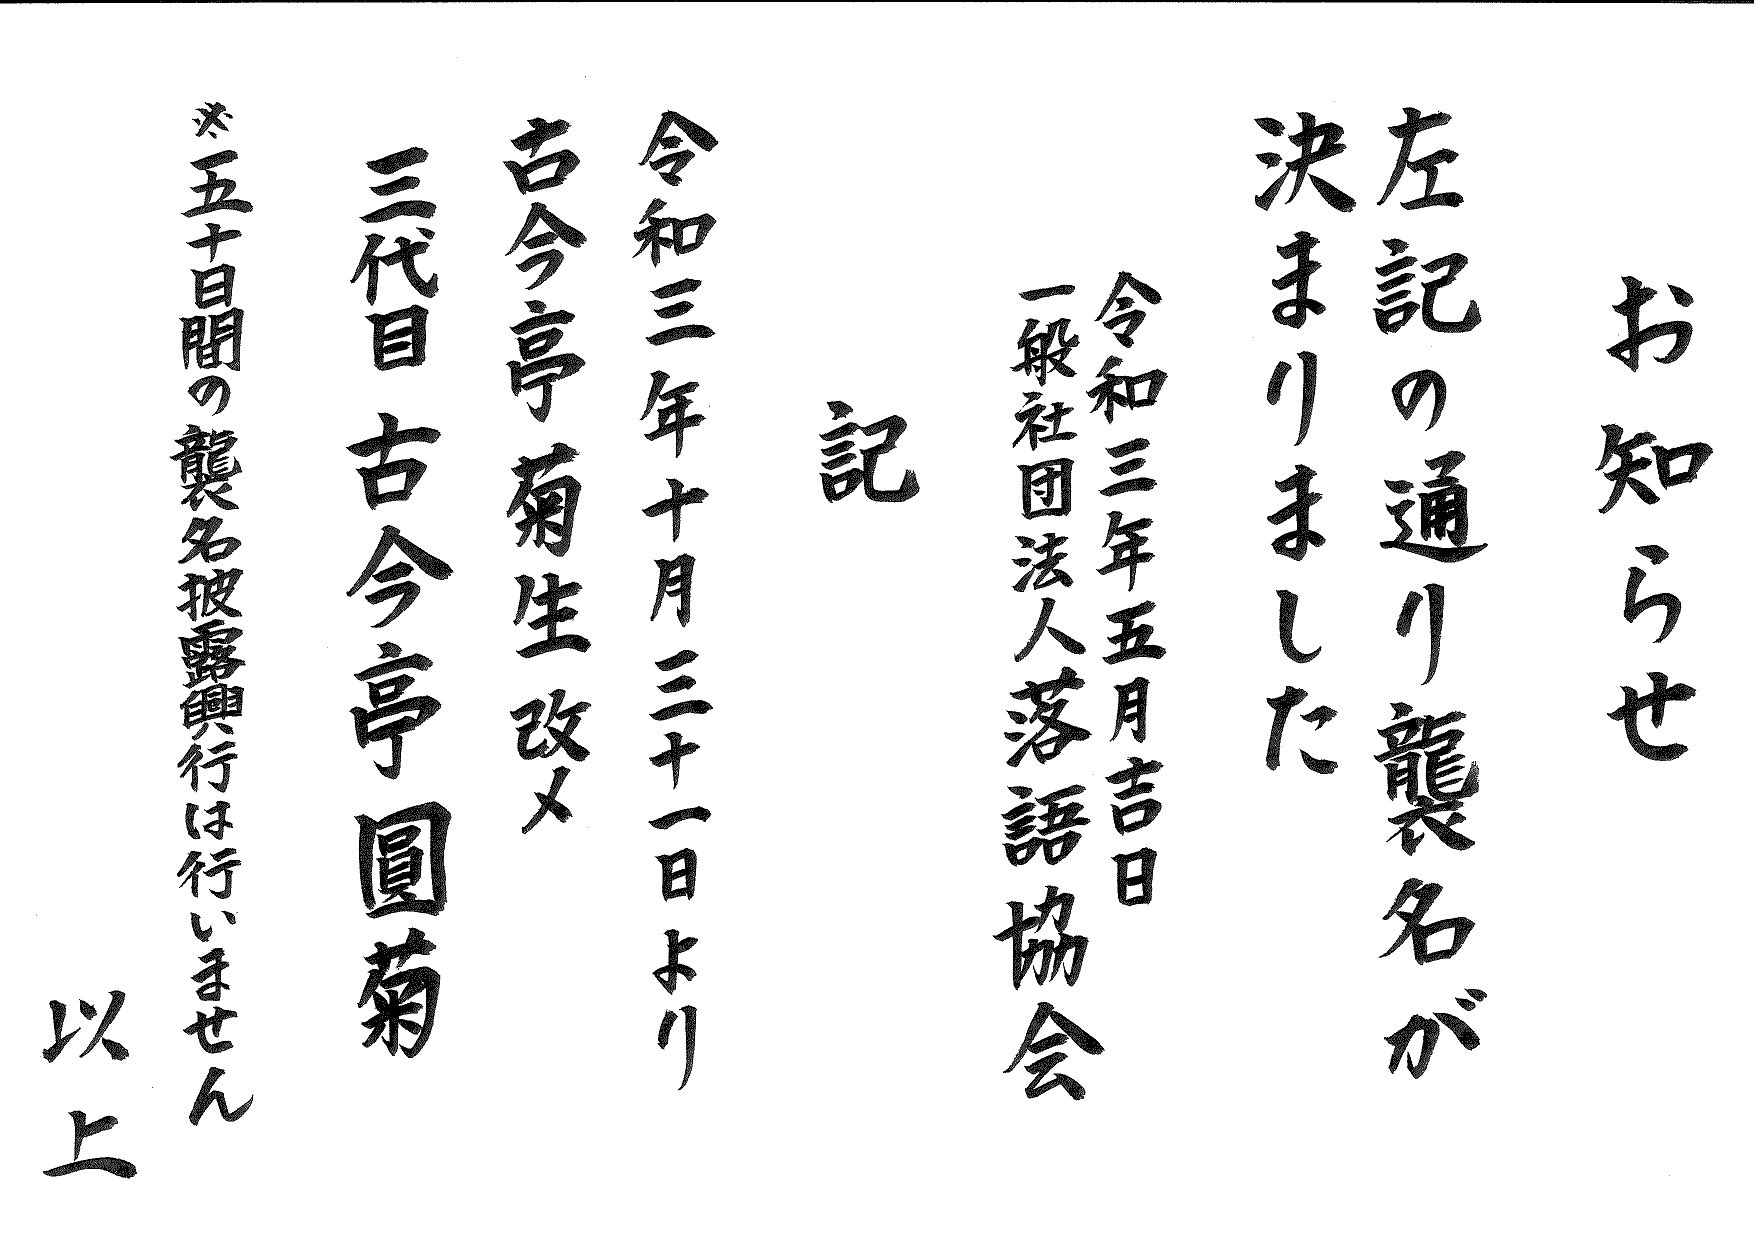 お知らせ
左記の通り襲名が
決まりました
令和三年五月吉日
一般社団法人落語協会
記
令和三年十月三十一日より
古今亭菊生改メ
三代目 古今亭圓菊
※五十日間の襲名披露興行は行いません
以上